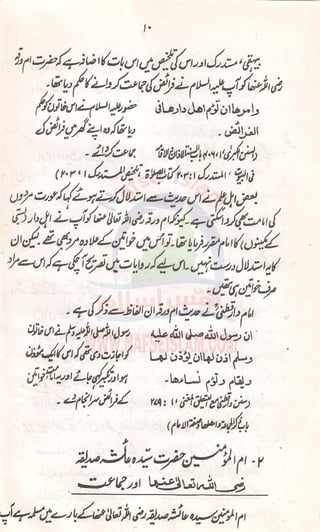 ۱۰
بیہقی، مستدرک اور اس کی تلخیص میں اس بات کا اضافہ ہے کہ حضرت ام ورقہ
رضی اللہ عنہا کو آپ علیہ السلام نے فرائض کی جماعت کروانے کا حکم دیا تھا۔
وامرھا ان تؤم اھل دارھا فی حضور علیہ السلام نے اس خاتون کو حکم
الفرائض۔ دیا تھا کہ وہ اپنے گھر میں فرائض کی
جماعت کرائے۔
بعض اہل علم نے اس حدیث سے استدلال کرتے ہوئے کہا کہ عورت مردوں
کی امامت بھی کروا سکتی ہے۔ کیونکہ ام ورقہ رضی اللہ تعالیٰ عنہا کو آپ نے اہل دار (بستی
کے مکینوں) کا امام مقرر فرمایا تھا۔ تو اس میں خواتین کے علاوہ مرد بھی تھے لیکن ان
کا یہ استدلال درست نہیں۔ اس لیے کہ روایات میں تصریح آچکی ہے کہ اس سے مراد
صرف خواتین ہی تھیں۔
امام دارقطنی نے حدیث ام ورقہ ان الفاظ سے ذکر کی ہے۔
ان رسول اللہ صلی اللہ علیہ رسول اللہ صلی اللہ علیہ وسلم نے اس خاتون
وسلم اذن لھا ان یؤذن لھا کو اجازت دی تھی کہ اس کا ایک مؤذن
ویقام وتؤم نساءھا۔ ہو اور تکبیر کہی جائے اور یہ امامت خواتین
کے فرائض سر انجام دے۔
۲- ام المؤمنین حضرت سیدہ عائشہ صدیقہ
رضی اللہ تعالیٰ عنہا اور جماعت
ام المؤمنین سیدہ عائشہ صدیقہ رضی اللہ تعالیٰ عنہا کے بارے میں مسلم ہے آپ
WWW.NAFSEISLAM.COM